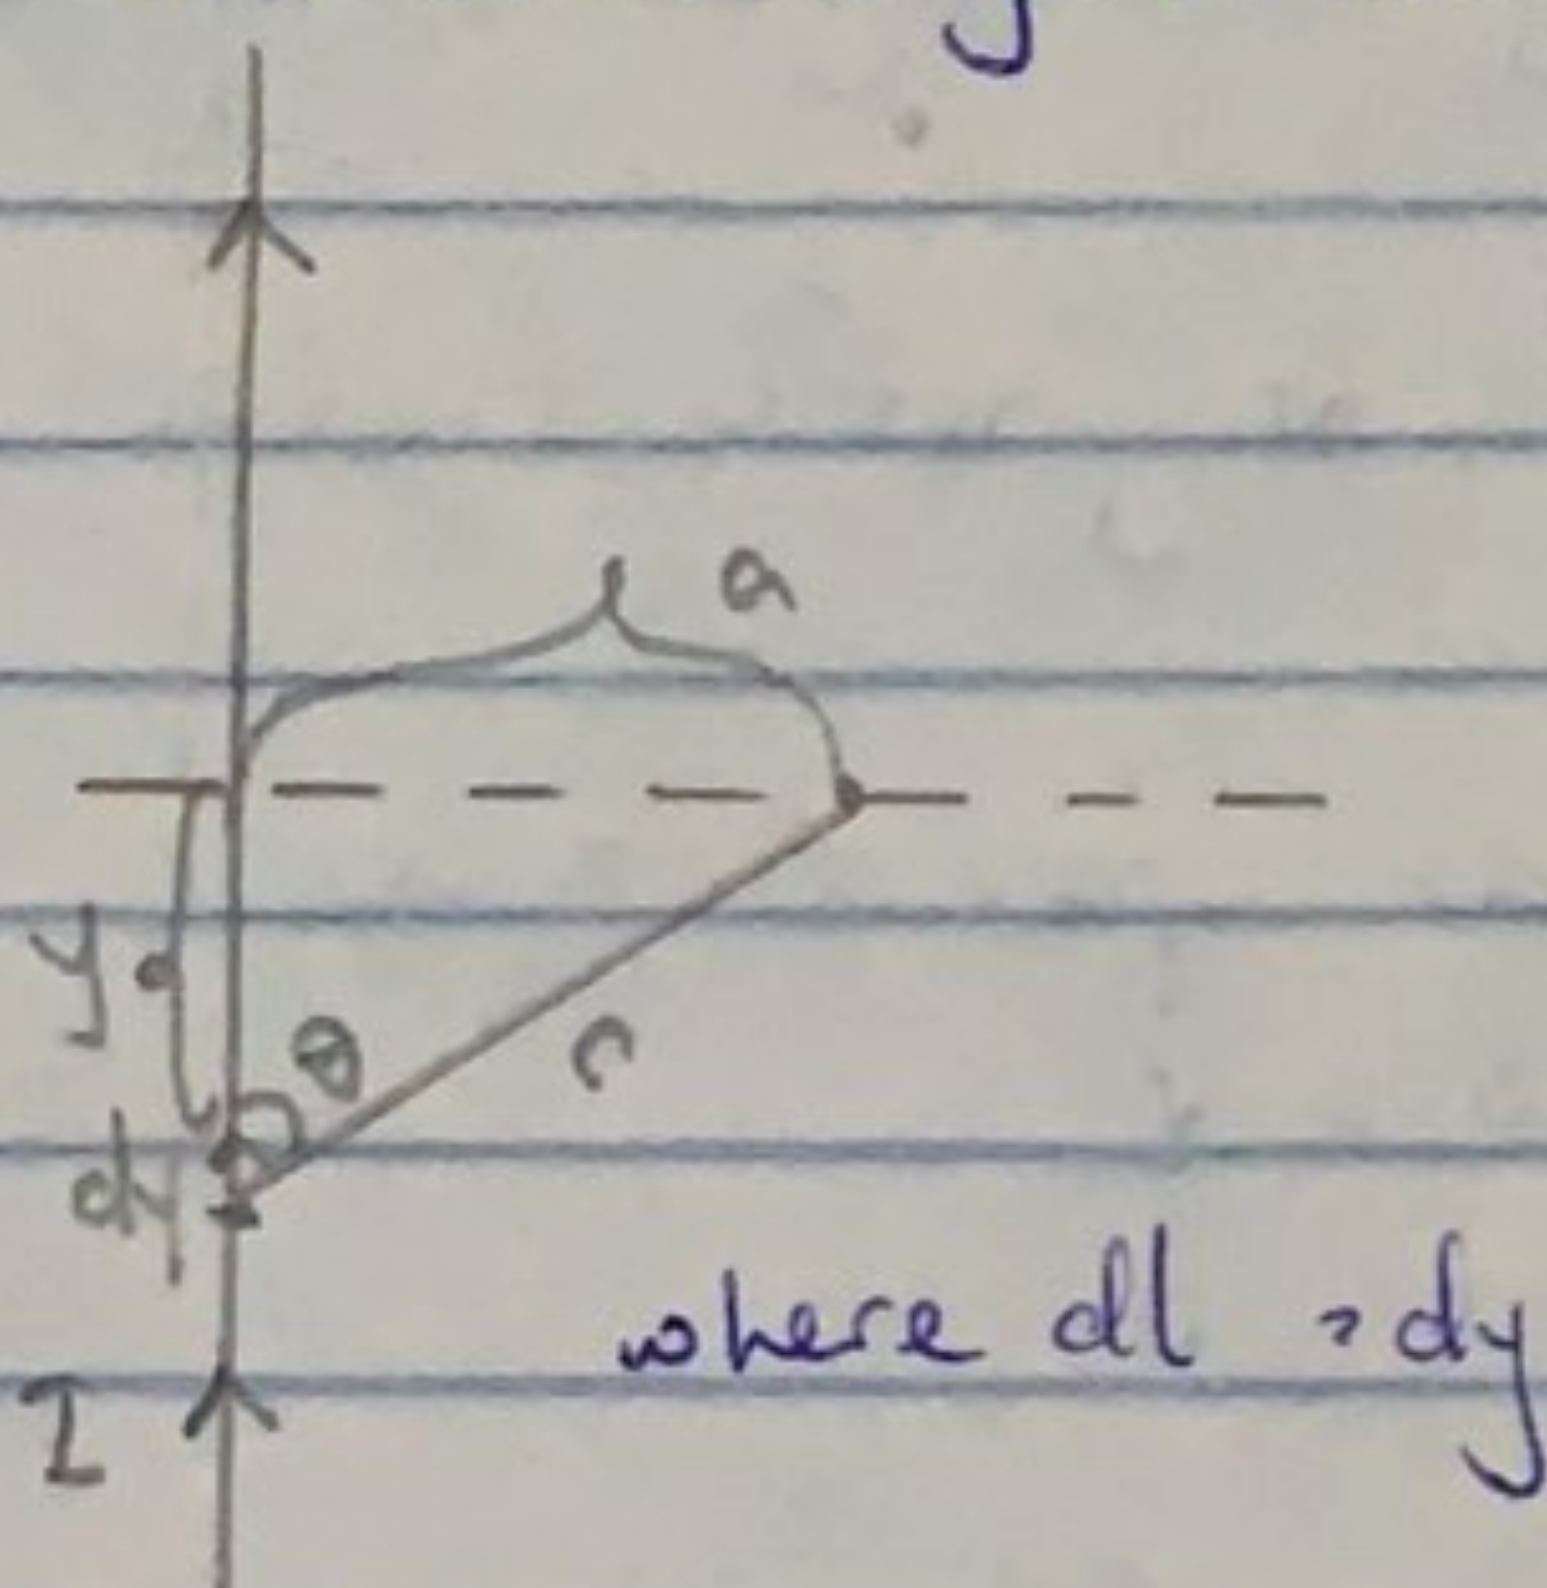 a
y
θ
r
dy
where dl = dy
I